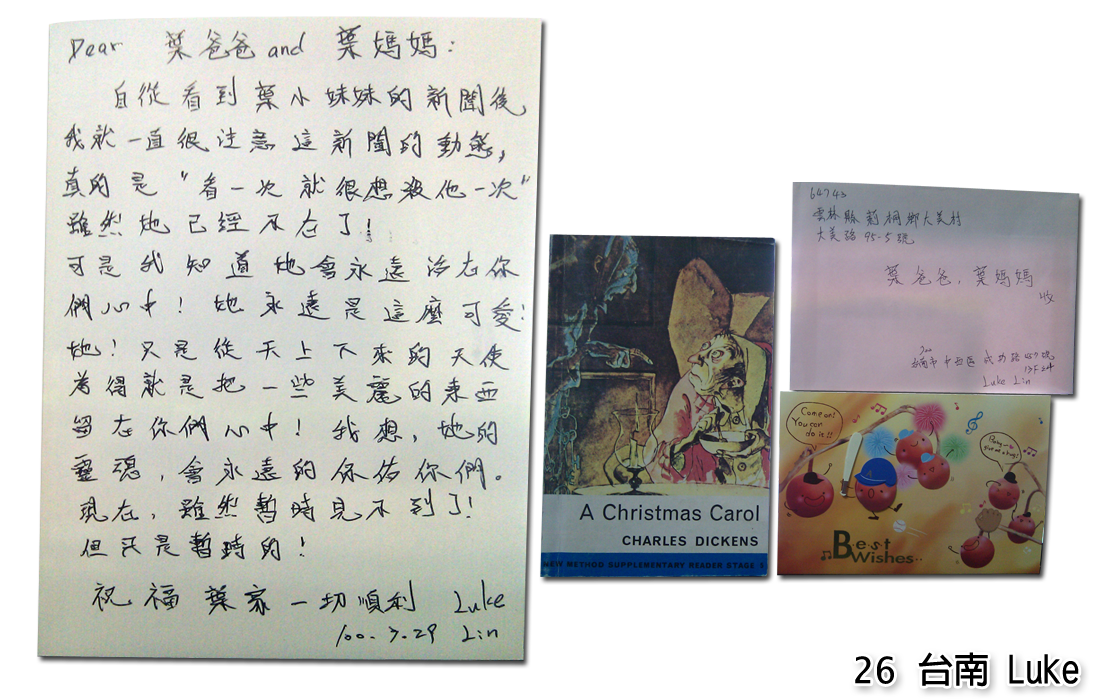 Dear 葉爸爸 and 葉媽媽:
自從看到葉小妹妹的新聞後,
我就一直很注意這新聞的動態,
真的是"看一次就很想殺他一次"
雖然她已經不在了!
可是我知道她會永遠活在你
們心中! 她永遠是這麼可愛!
她! 只是從天上下來的天使
為得就是把一些美麗的東西
留在你們心中! 我想, 她的
靈魂, 會永遠的保佑你們。
現在, 雖然暫時見不到了!
但只是暫時的!
祝福葉家一切順利 Luke
100.7.29 Lin
A Christmas Carol
CHARLES DICKENS
NEW METHOD SUPPLEMENTARY READER STAGE
64743
雲林縣莿桐鄉大美村
大美路 95-5號
葉爸爸, 葉媽媽
收
700
台南市中西區 成功路457號
Luke Lin
Come on!
You can
do it!!
Best
Wishes..
26 台南 Luke